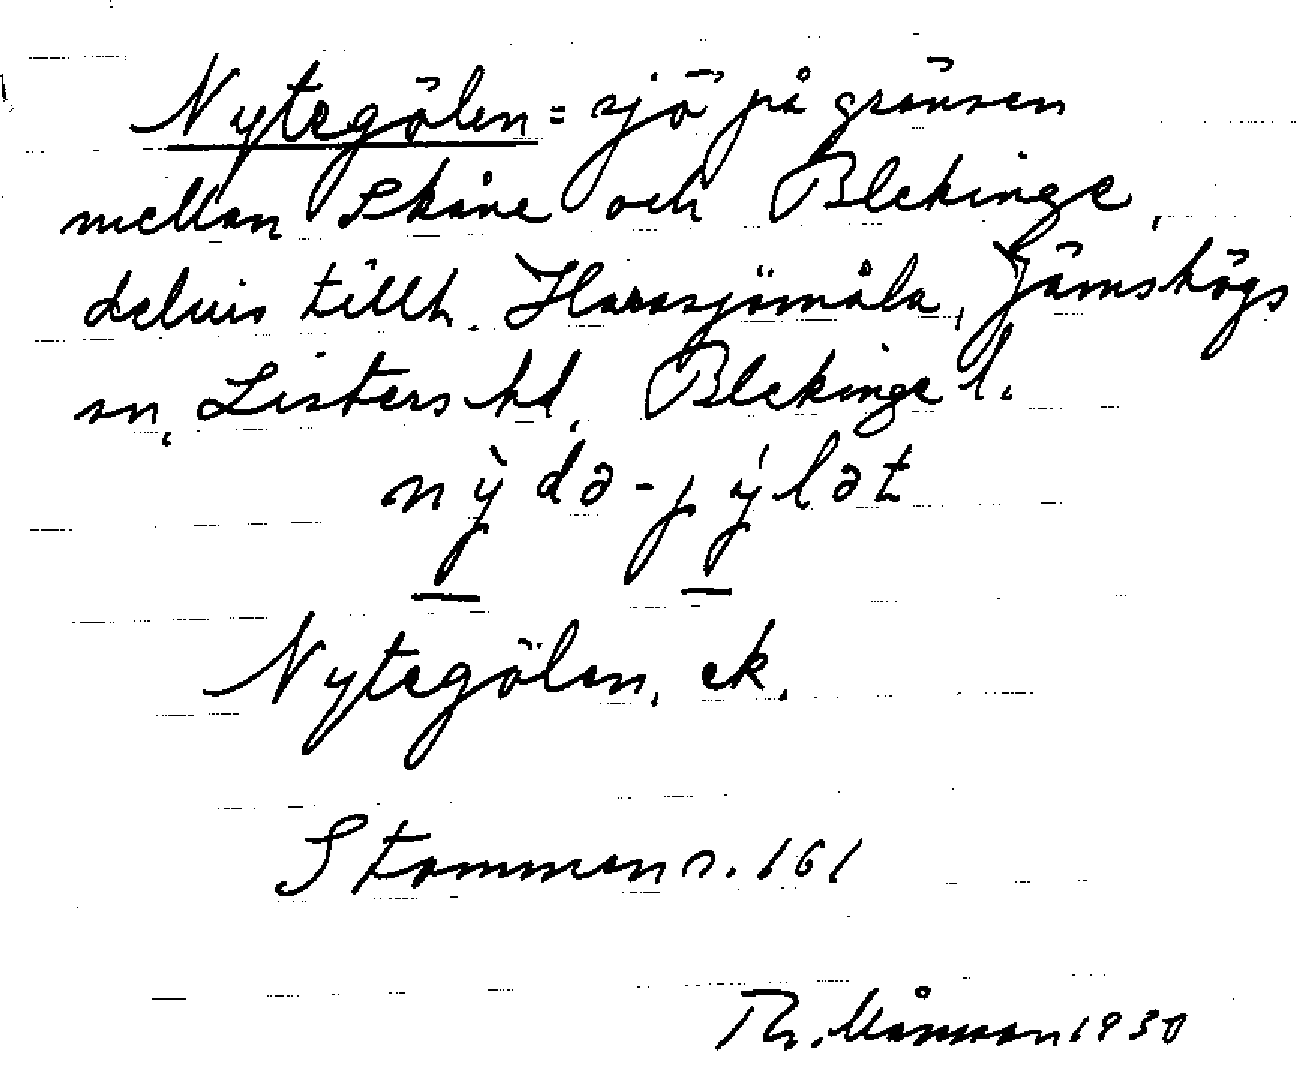 Nytegölen = sjö på gränsen
mellan Skåne och Blekinge,
delvis tillh. Harasjömåla, Jämshögs
sn, Listers hd, Blekinge l.
nỳdə-pýlət
Nytegölen, ek.
Stommen s. 161
Th. Månsson 1930